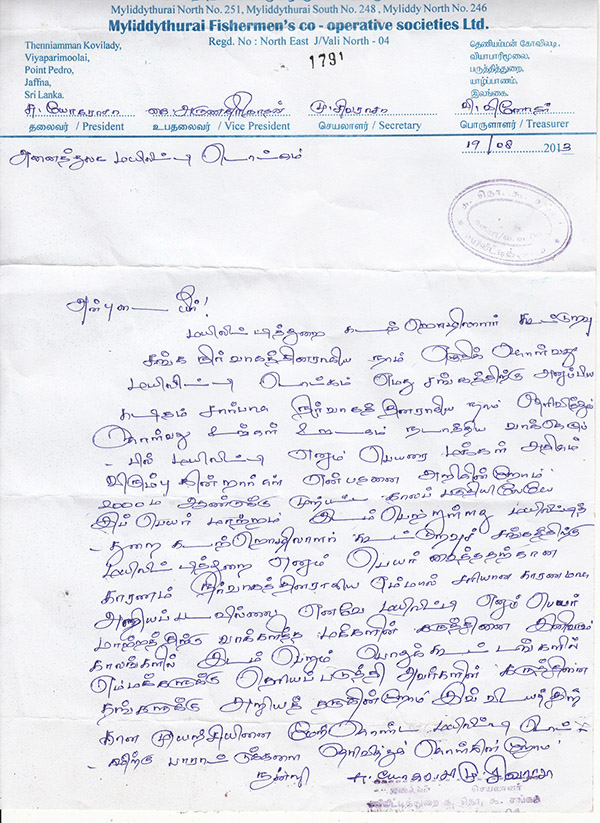 Myliddythurai North No. 251, Myliddythurai South No. 248 , Myliddy North No. 246
Myliddythurai Fishermen's co - operative societies Ltd.
Regd. No : North East J/Vali North - 04
Thenniamman Kovilady,
Viyaparimoolai,
Point Pedro,
Jaffna,
Sri Lanka.
1791
தெணியம்மன் கோவிலடி,
வியாபாரிமூலை,
பருத்தித்துறை,
யாழ்ப்பாணம்,
இலங்கை.
தலைவர் / President
உபதலைவர் / Vice President
செயலாளர் / Secretary
பொருளாளர் / Treasurer
19/08 2013
மயிலிட்டி
அன்புடையீர்!
மயிலிட்டித்துறை கடற்றொழிலாளர் கூட்டுறவு
சங்க நிர்வாகத்தினராகிய நாம் அறியத்
மயிலிட்டி எமது சங்கத்திற்கு அனுப்பிய
கடிதம் சார்பாக நிர்வாகத்தினராகிய நாம் தெரிவித்துக்
கொள்வது உங்கள் ஊடகம் நடாத்திய வாக்கெடுப்
- பில் மயிலிட்டி எனும் பெயரை மக்கள் அதிகம்
விரும்புகின்றார்கள் என்பதனை அறிகின்றோம்
2000ம் ஆண்டுக்கு முற்பட்ட காலப்பகுதியிலேயே
இப் பெயர் மாற்றம் இடம் பெற்றுள்ளது மயிலிட்டித்
- துறை கடற்றொழிலாளர் கூட்டுறவுச் சங்கத்திற்கு
மயிலிட்டித்துறை எனும் பெயர் வைத்ததற்கான
காரணம் நிர்வாகத்தினராகிய எம்மால் சரியான காரணமாக
அறியப்படவில்லை எனவே மயிலிட்டி எனும் பெயர்
மாற்றத்திற்கு வாக்களித்த மக்களின் கருத்தினை இனிவரும்
காலங்களில் இடம் பெறும் பொதுக் கூட்டங்களில்
எம்மக்களுக்கு தெரியப்படுத்தி அவர்களின் கருத்தினை
தங்களுக்கு அறியத் தருகின்றோம் இவ் விடயத்திற்
கான முயற்சியினை மேற்கொண்ட மயிலிட்டி
பாராட்டுக்களை தெரிவித்துக் கொள்கின்றோம்
நன்றி